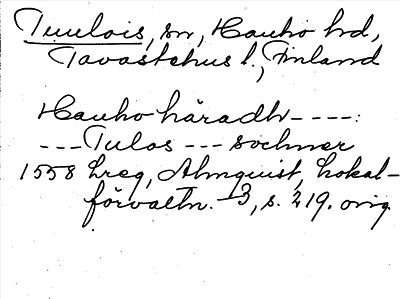 Tuulois, sn, Hauho hd,
Tavastehus l., Finland
Hauho häradh ----:
--- Tulos --- sochner
1558 Lreg, Almquist, Lokal-
förvaltn. 3, s. 219. orig.